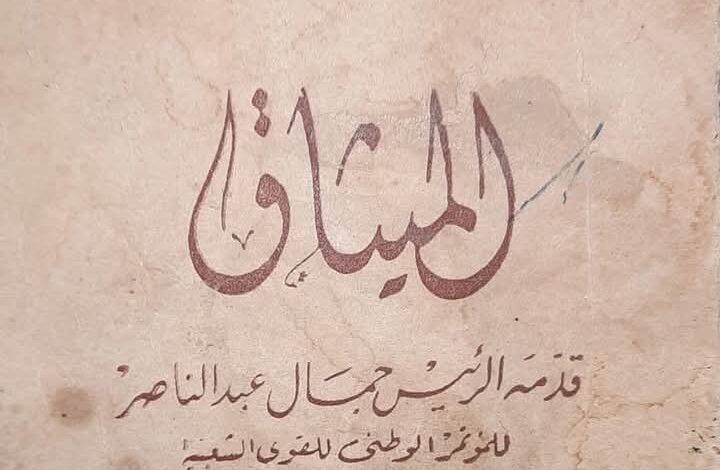 الميثاق
قدّمه الرئيس جمال عبد الناصر
للمؤتمر الوطنى للقوى الشعبية